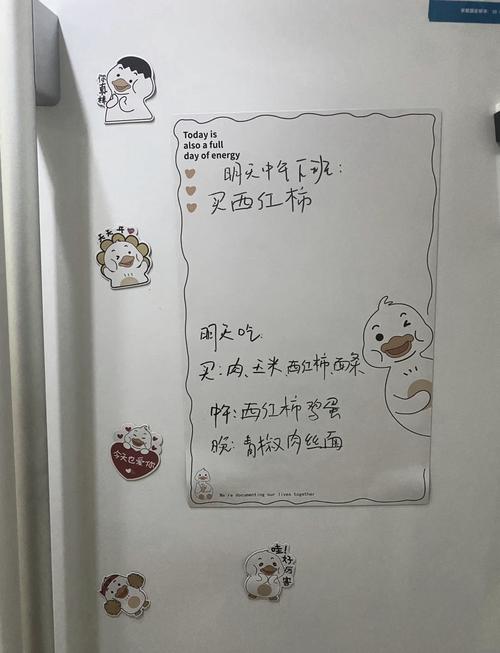 你真棒
Today is
also a full
day of energy
明天中午下班:
买西红柿
天天开心
明天吃:
买:肉、玉米、西红柿、面条
中午:西红柿鸡蛋
晚:青椒肉丝面
今天也爱你
We're documenting our lives together
哇!
好厉害